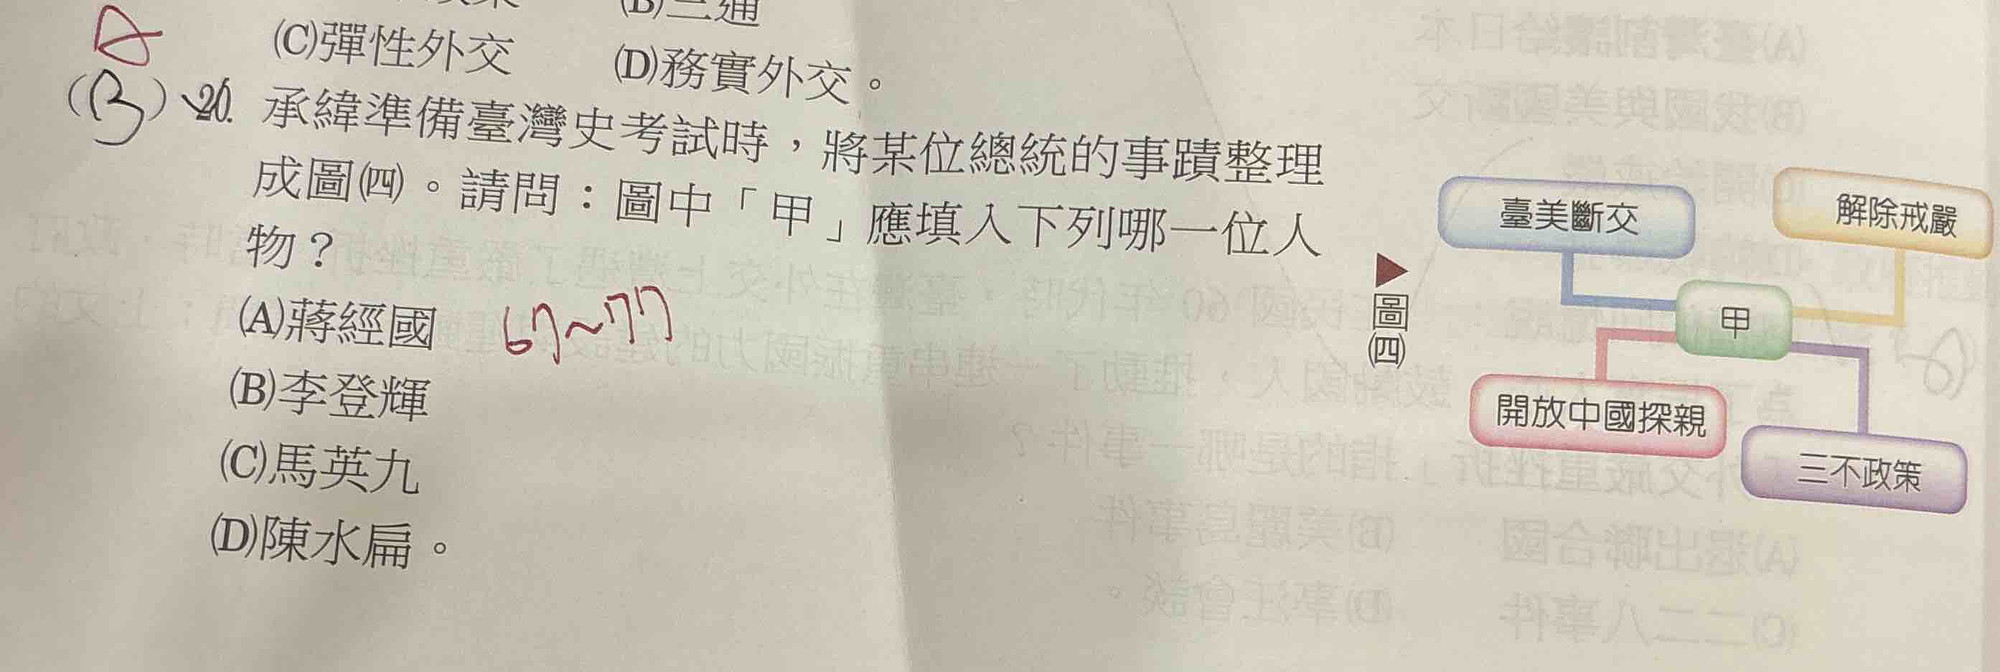 (B)三通
(C)彈性外交 (D)務實外交。
A
(B) 20. 承緯準備臺灣史考試時，將某位總統的事蹟整理
成圖㈣。請問：圖中「甲」應填入下列哪一位人
物？
(A)蔣經國 67~77
(B)李登輝
(C)馬英九
(D)陳水扁。
▶圖㈣
臺美斷交
解除戒嚴
甲
開放中國探親
三不政策